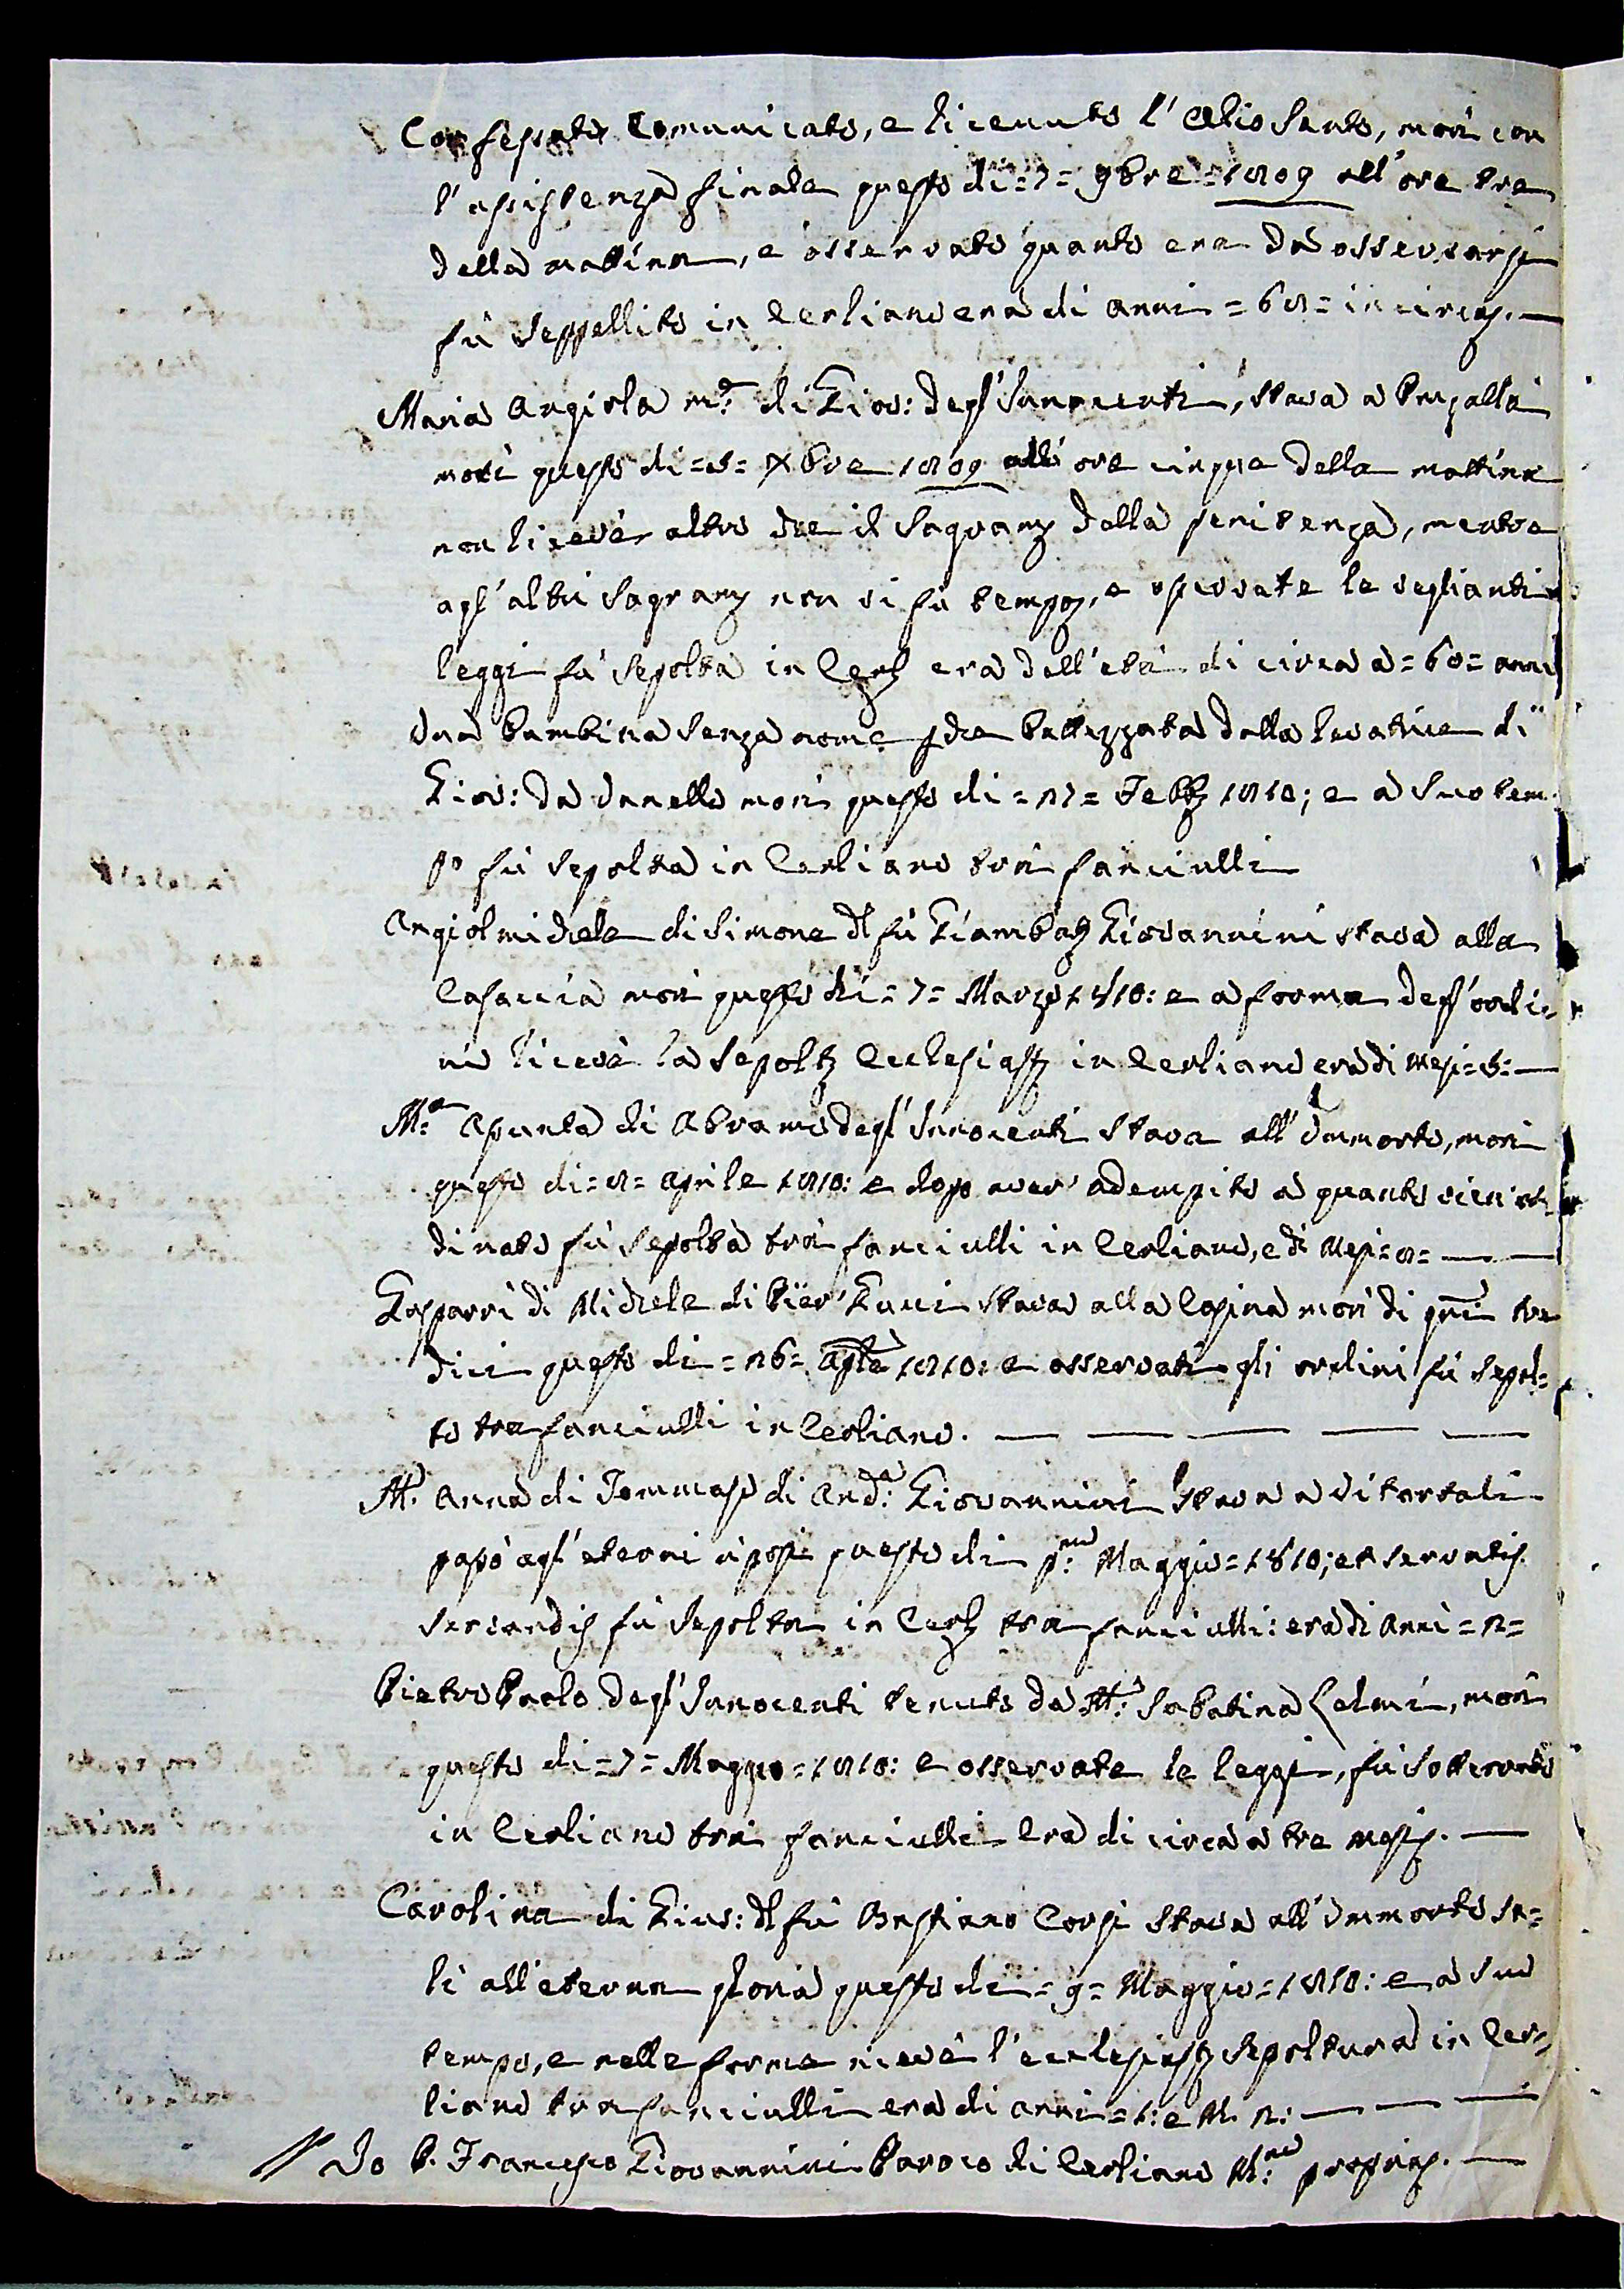 Confessato Comunicato, e ricevuto l'Olio Santo, morì con
l'assistenza finale questo dì =7= 9bre =1809 all'ore tre
della mattina, e osservato quanto era da osservarsi
fù seppellito in Cerliano era di anni =68= in circa. —
Maria Angiola m.e di Giov: degl'Innocenti, stava a
morì questo dì =5= Xbre 1809 all'ore cinque della mattina
non ricevè altro che il Sagram della penitenza, mentre
agl'altri Sagram non vi fù tempo, e osservate le veglianti
leggi fù sepolta in Cerl era dell'età di circa a =60= anni
Una bambina senza nome, che battezzata dalla levatrice di
Giov: da morì questo dì =27= Febb 1810; e a suo tem
po fù sepolta in Cerliano trà fanciulli
Angiolmichele di Simone dl fù Giambat Giovannini stava alla
Casaccia morì questo dì =7= Marzo 1810: e a forma degl'ordi=
ni ricevè la sepolt Ecclesiast in Cerliano era di Mesi =5= —
M.a Assunta di Abramo degl'Innocenti stava all'Ommorto, morì
questo dì =8= Aprile 1810: e dopo aver' adempito a quanto vien or
dinato fù sepolta trà fanciulli in Cerliano, e di Mesi =8= — —
Gasparri di Michele di Pier' stava alla Casina morì di gni tre
dici questo dì =26= Aple 1810: e osservati gli ordini fù sepol=
to tra fanciulli in Cerliano. — — — — —
M.a Anna di Tommaso di And.a Giovannini stava a Vitortali
passò agl'eterni riposi questo dì p.mo Maggio =1810; et servatis
servandis fù sepolta in Cerl tra fanciulli: era di Anni =2=
Pietro Paolo degl'Innocenti tenuto da M.a Sabatina Celmi, morì
questo dì =7= Maggio =1810: e osservate le leggi, fù sotterrato
in Cerliano trà fanciulli era di circa a tre mesi. —
Carolina di Gius: dl fù Bastiano Corsi stava all'Ommorto sa=
lì all'eterna gloria questo dì =9= Maggio =1810: e a suo
tempo, e nelle forme ricevè l'ecclesiast sepoltura in Cer=
liano tra fanciulli era di anni =1: e M. 2: — — —
Io P. Francesco Giovannini Paroco di Cerliano M.no propria. —